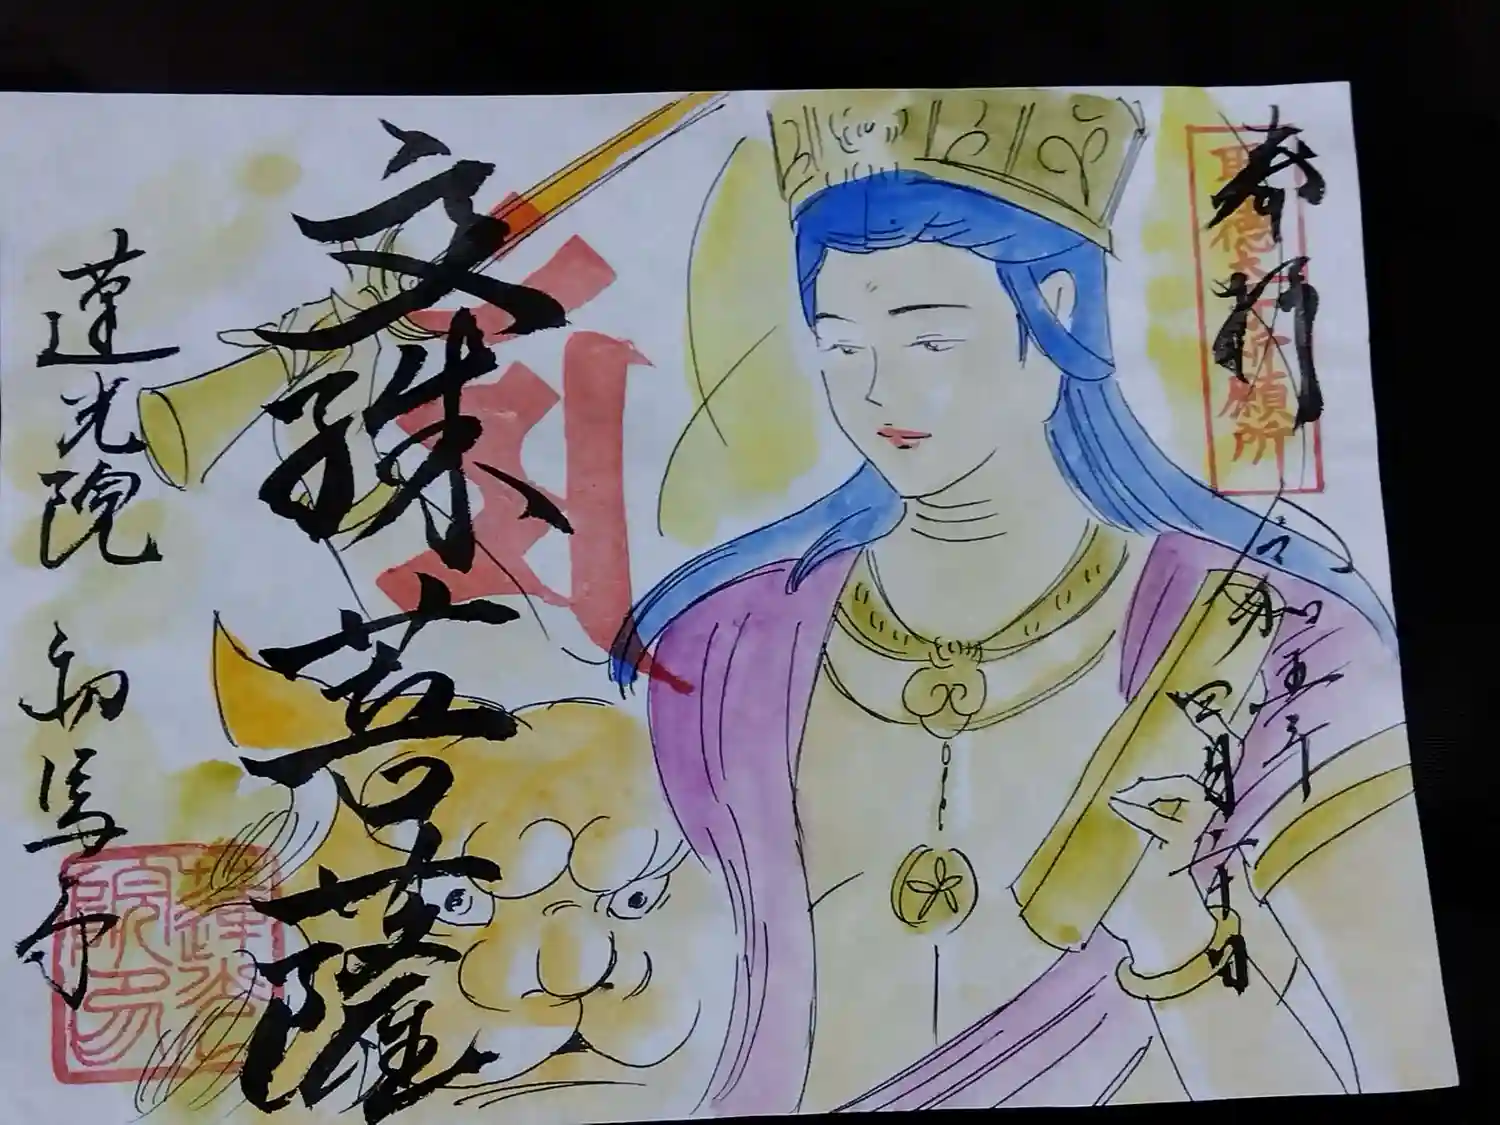 奉拝
聖徳太子祈願所
令和五年
四月二十日
文殊菩薩
蓮光院 初馬寺
蓮光院印